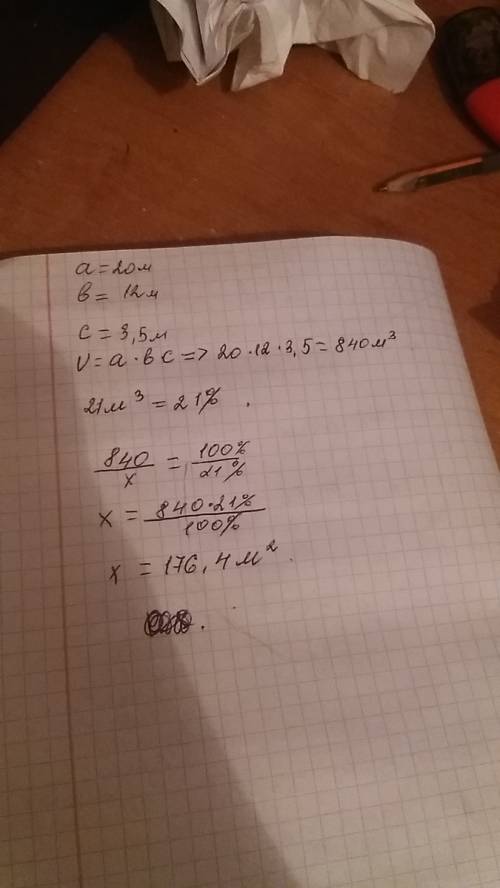 a = 20м
в = 12м
c = 3,5м
V = a · в c => 20 · 12 · 3,5 = 840м³
21м³ = 21% .
840/x = 100%/21%
x = 840·21%/100%
x = 176,4м² .